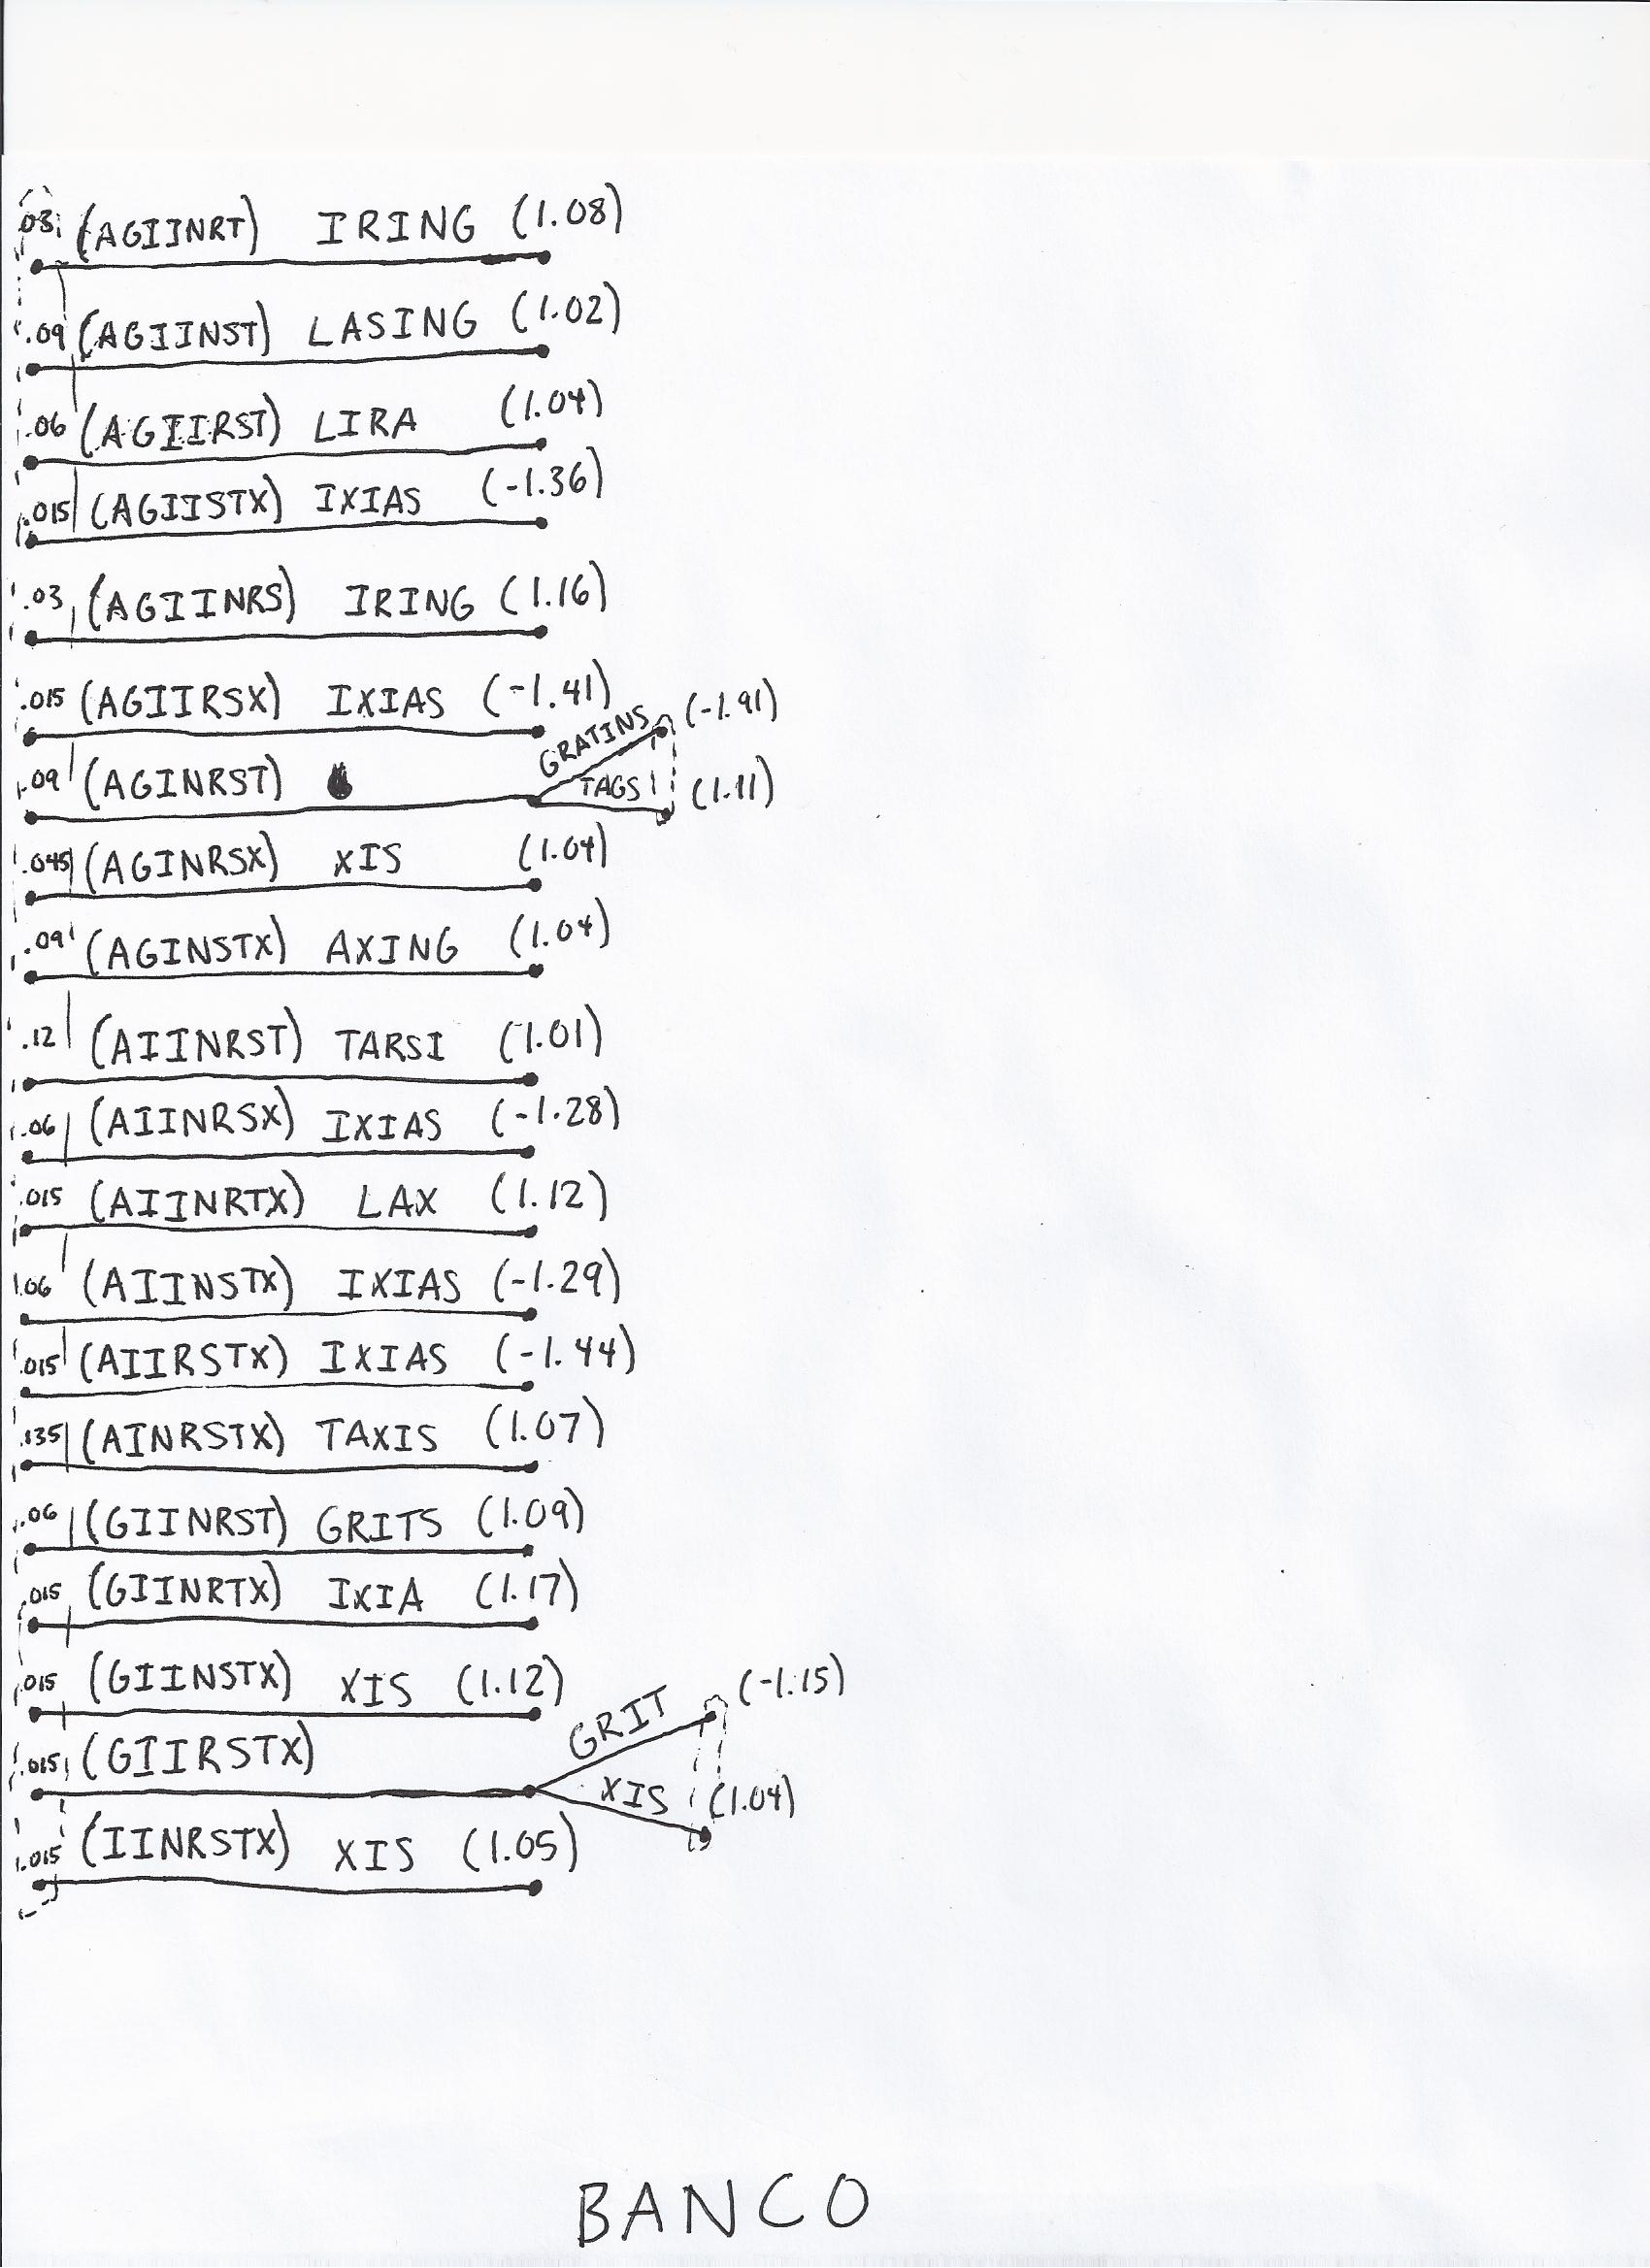 .03 (AGIINRT) IRING (1.08)
.09 (AGIINST) LASING (1.02)
.06 (AGIIRST) LIRA (1.04)
.015 (AGIISTX) IXIAS (-1.36)
.03 (AGIINRS) IRING (1.16)
.015 (AGIIRSX) IXIAS (-1.41)
GRATINS (-1.91)
.09 (AGINRST) TAGS (1.11)
.045 (AGINRSX) XIS (1.04)
.09 (AGINSTX) AXING (1.04)
.12 (AIINRST) TARSI (1.01)
.06 (AIINRSX) IXIAS (-1.28)
.015 (AIINRTX) LAX (1.12)
.06 (AIINSTX) IXIAS (-1.29)
.015 (AIIRSTX) IXIAS (-1.44)
.135 (AINRSTX) TAXIS (1.07)
.06 (GIINRST) GRITS (1.09)
.015 (GIINRTX) IXIA (1.17)
.015 (GIINSTX) XIS (1.12)
GRIT (-1.15)
.015 (GIIRSTX) XIS (1.04)
.015 (IINRSTX) XIS (1.05)
BANCO